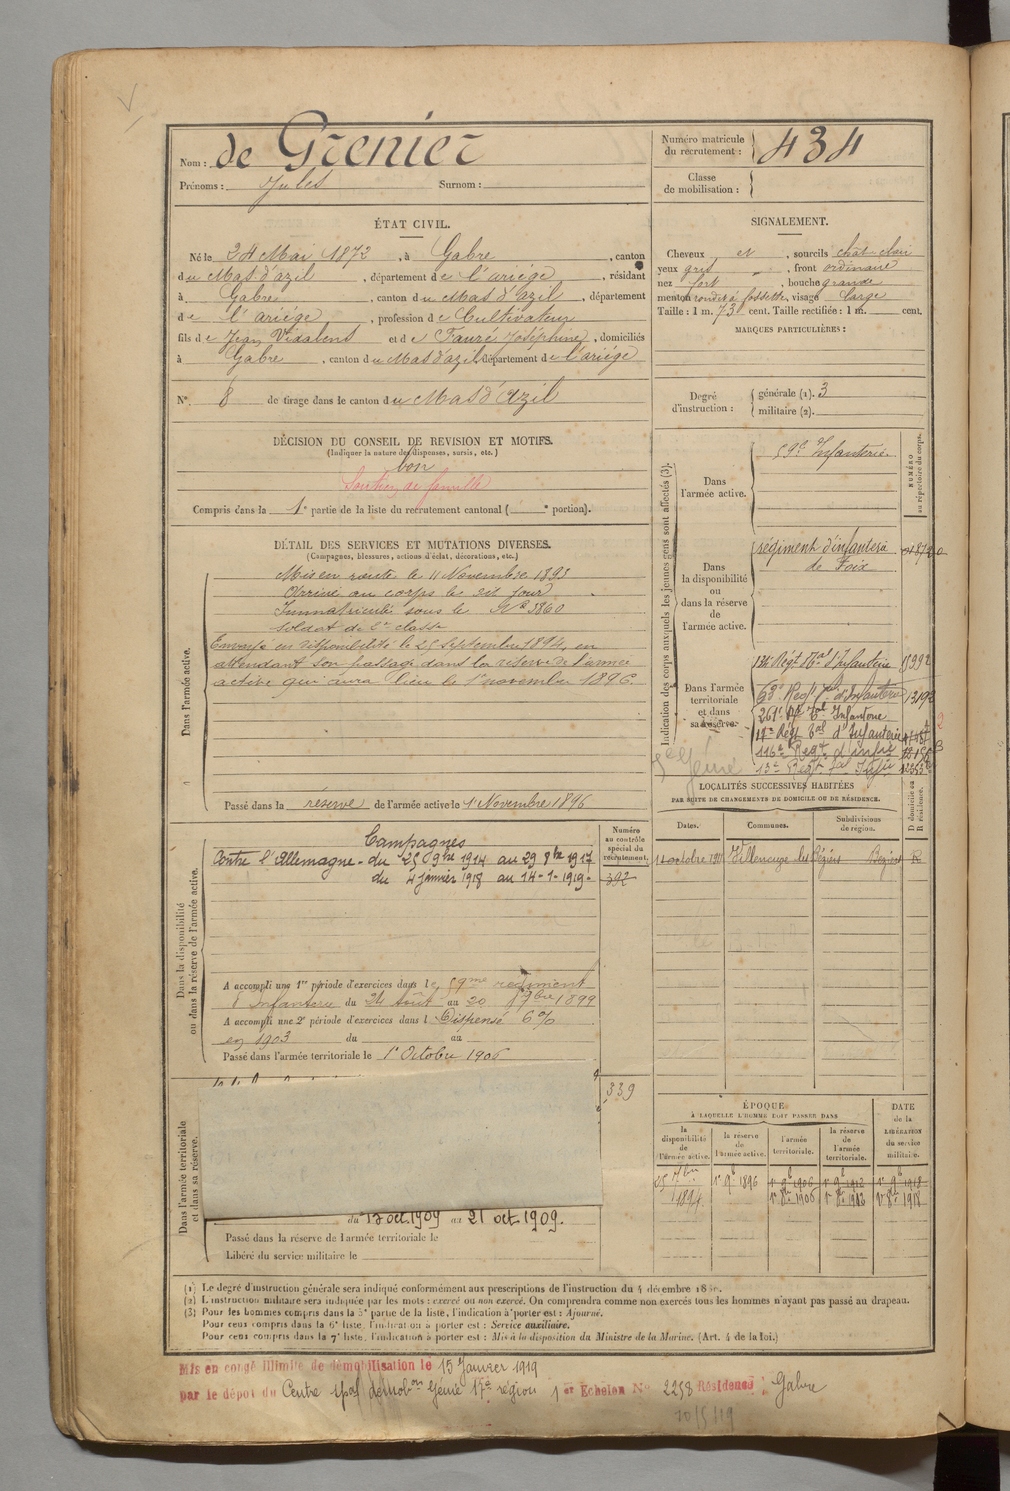 Nom : de Grenier
Prénoms : Jules Surnom :
Numéro matricule du recrutement : 434
Classe de mobilisation :
ÉTAT CIVIL.
Né le 24 Mai 1872, à Gabre, canton
du Mas d'azil, département de l'ariége, résidant
à Gabre, canton du Mas d'azil, département
de l'ariége, profession de Cultivateur
fils de Jean Vidalens et de Fauré Joséphine, domiciliés
à Gabre, canton du Mas d'azil, département de l'ariége
N° 8 de tirage dans le canton du Mas d'Azil
SIGNALEMENT.
Cheveux et, sourcils chât-clair
yeux gris, front ordinaire
nez fort, bouche grande
menton rond et à fossette, visage large
Taille : 1 m. 73 cent. Taille rectifiée : 1 m. cent.
MARQUES PARTICULIÈRES :
Degré d'instruction : générale (1). 3
militaire (2).
DÉCISION DU CONSEIL DE REVISION ET MOTIFS.
(Indiquer la nature des dispenses, sursis, etc.)
bon
Soutien de famille
Compris dans la 1e partie de la liste du recrutement cantonal ( e portion).
DÉTAIL DES SERVICES ET MUTATIONS DIVERSES.
(Campagnes, blessures, actions d'éclat, décorations, etc.)
Dans l'armée active.
Mis en route le 11 Novembre 1893
Arrivé au corps le dit jour
Immatriculé sous le N° 3860
soldat de 2e classe
Envoyé en disponibilité le 25 septembre 1894, en
attendant son passage dans la réserve de l'armée
active qui aura lieu le 1er novembre 1896.
Passé dans la réserve de l'armée active le 1er Novembre 1896
Indication des corps auxquels les jeunes gens sont affectés (3).
NUMÉRO au répertoire du corps.
Dans l'armée active.
59e Infanterie
Dans la disponibilité ou dans la réserve de l'armée active.
régiment d'infanterie
de Foix
Dans l'armée territoriale et dans sa réserve.
134 Régt Tal d'Infanterie
63e Regt Tal d'Infanterie
261e Rt Tal Infanterie
116e Regt
LOCALITÉS SUCCESSIVES HABITÉES
PAR SUITE DE CHANGEMENTS DE DOMICILE OU DE RÉSIDENCE.
Dates. Communes. Subdivisions de région. D domicile ou R résidence.
Villeneuve les Béziers Beziers R
Dans la disponibilité ou dans la réserve de l'armée active.
Numéro au contrôle spécial du recrutement.
392
Campagnes
Contre l'Allemagne - du 25 9bre 1914 au 29 8bre 1917
du 4 janvier 1918 au 14-1-1919-
A accompli une 1re période d'exercices dans le 59me regiment
d'Infanterie du 24 août au 20 7bre 1899
A accompli une 2e période d'exercices dans l Dispensé 6%
en 1903 du au
Passé dans l'armée territoriale le 1er Octobre 1906
Dans l'armée territoriale et dans sa réserve.
339
du 13 oct. 1909 au 21 oct. 1909.
Passé dans la réserve de l'armée territoriale le
Libéré du service militaire le
ÉPOQUE
À LAQUELLE L'HOMME DOIT PASSER DANS
DATE de la LIBÉRATION du service militaire.
la disponibilité de l'armée active. la réserve de l'armée active. l'armée territoriale. la réserve de l'armée territoriale.
25 7bre 1894. 1er 9bre 1896 1er 9 1906 1er 9 1912 1er 9 1918
1er 8bre 1906 1er 8bre 1912 1er 8bre 1918
(1) Le degré d'instruction générale sera indiqué conformément aux prescriptions de l'instruction du 4 décembre 18
(2) L'instruction militaire sera indiquée par les mots : exercé ou non exercé. On comprendra comme non exercés tous les hommes n'ayant pas passé au drapeau.
(3) Pour les hommes compris dans la 5e partie de la liste, l'indication à porter est : Ajourné.
Pour ceux compris dans la 6e liste, l'indication à porter est : Service auxiliaire.
Pour ceux compris dans la 7e liste, l'indication à porter est : Mis à la disposition du Ministre de la Marine. (Art. 4 de la loi.)
Mis en congé illimité de démobilisation le 15 Janvier 1919
par le dépot du Centre spal démobon Génie 17e région 1er Echelon N° 2258 Résidence : Gabre
10/5/19